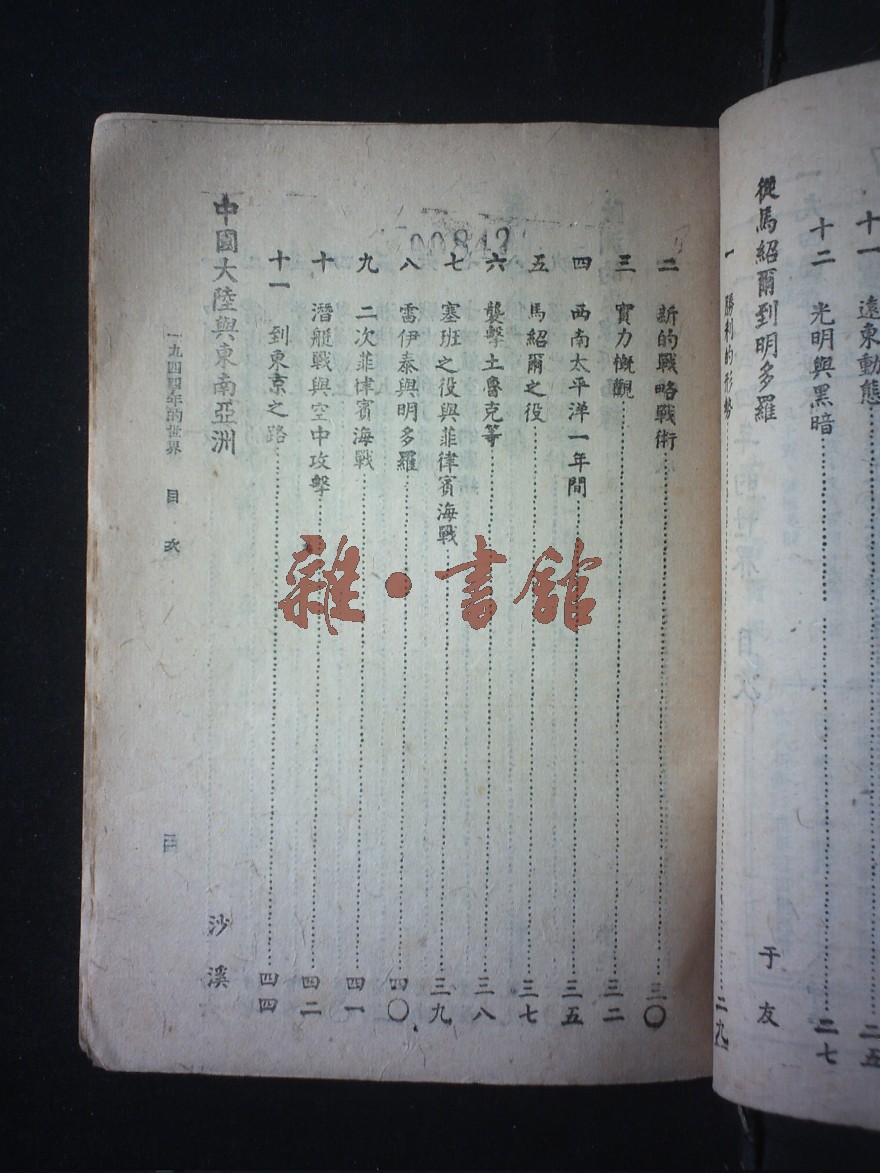 十一 遠東動態 二五
十二 光明與黑暗 二七
從馬紹爾到明多羅 于友
一 勝利的形勢 二九
二 新的戰略戰術 三〇
三 實力慨觀 三二
四 西南太平洋一年間 三五
五 馬紹爾之役 三七
六 襲擊土魯克等 三八
七 塞班之役與菲律賓海戰 三九
八 雷伊泰與明多羅 四〇
九 二次菲律賓海戰 四一
十 潛艇戰與空中攻擊 四二
十一 到東京之路 四四
中國大陸與東南亞洲 沙溪
一九四四年的世界 目次
00842
雜·書館